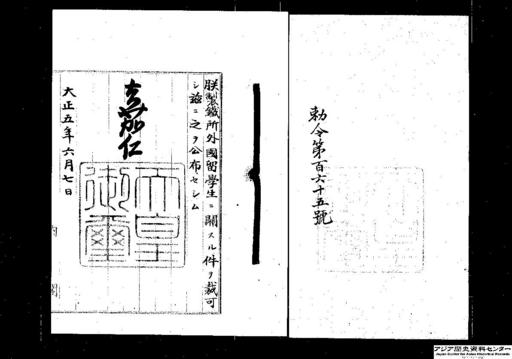 勅令第百六十五號
朕製鐵所外國留學生ニ關スル件ヲ裁可
シ茲ニ之ヲ公布セシム
嘉仁
天皇
御璽
大正五年六月七日
内閣
アジア歴史資料センター
Japan Center for Asian Historical Records